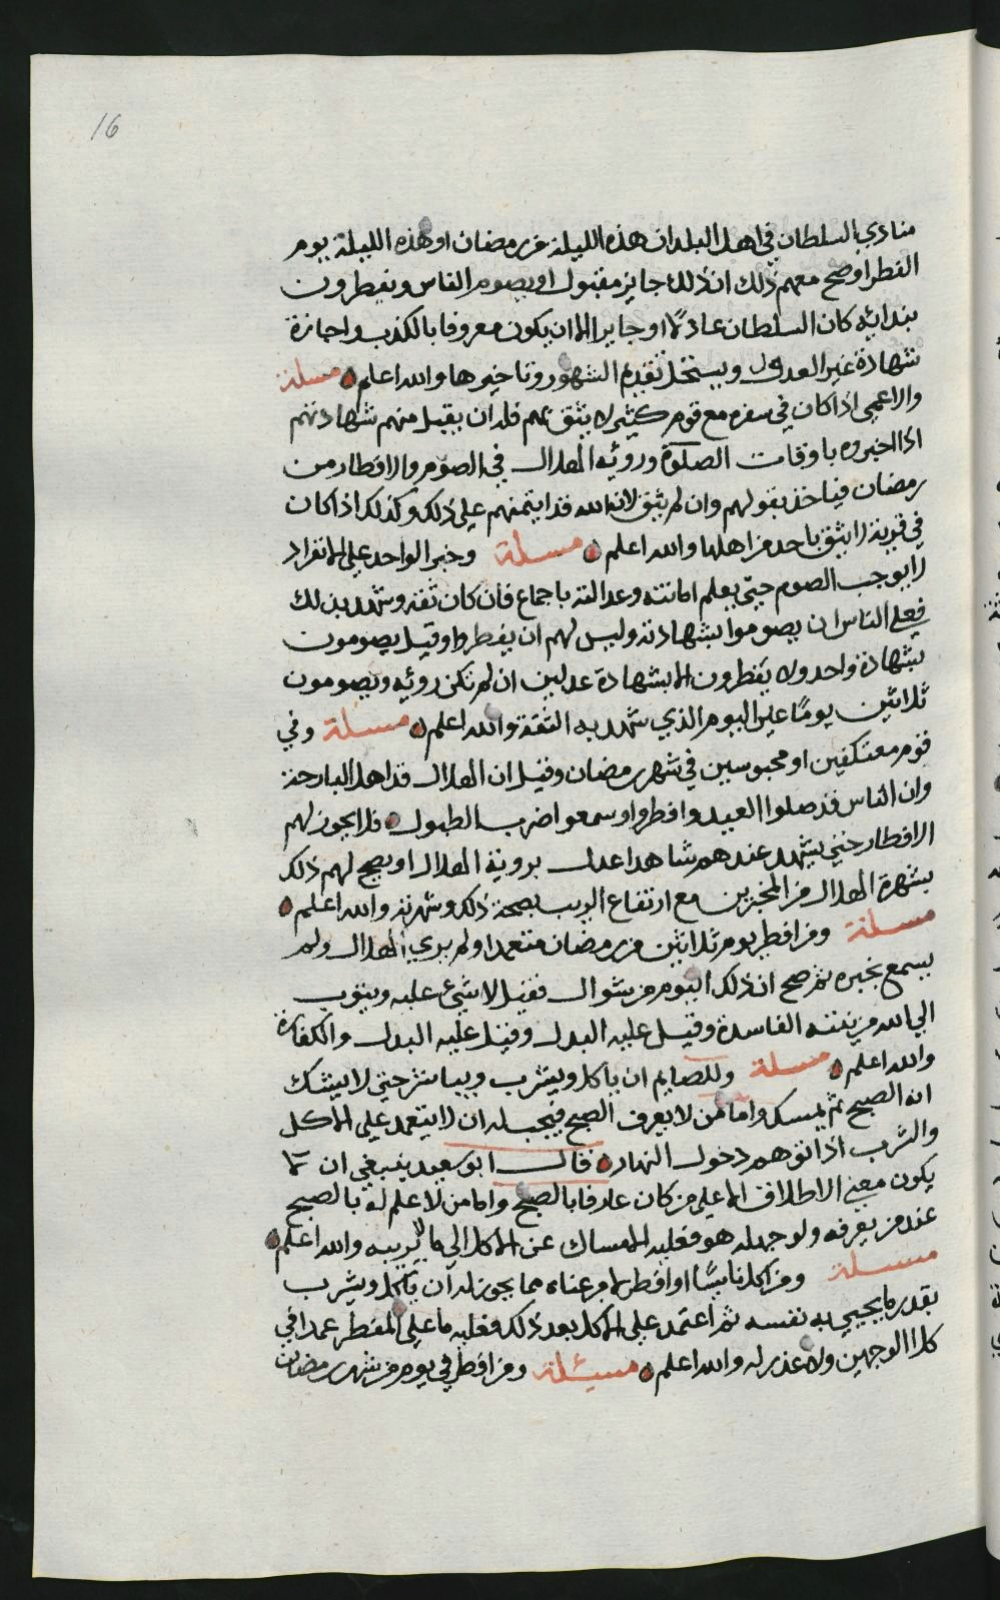 16
منادي السلطان في اهل البلد ان هذه الليلة من رمضان او هذه الليلة يوم
الفطر او صح معهم ذلك ان ذلك جايز مقبول او يصوم الناس ويفطرون
بندائه كان السلطان عادلًا او جايرا الا ان يكون معروفا بالكذب واجازة
شهادة غير العدول ويستحل تقديم الشهور وتاخيرها والله اعلم مسلة
والاعمى اذا كان في سفره مع قوم كثير لا يثق بهم فله ان يقبل منهم شهادتهم
اذا اخبروه باوقات الصلوة وروئية الهلال في الصوم والافطار من
رمضان فياخذ بقولهم وان لم يثق لان الله قد ايتمنهم على ذلك وكذلك اذا كان
في قرية لا يثق باحد من اهلها والله اعلم مسلة وخبر الواحد على الانفراد
لا يوجب الصوم حتى يعلم امانته وعدالته باجماع فان كان ثقة وشهد بذلك
فعلى الناس ان يصوموا بشهادته وليس لهم ان يفطروا وقيل يصومون
بشهادة واحد ولا يفطرون الا بشهادة عدلين ان لم تكن رويه ويصومون
ثلاثين يومًا غير اليوم الذي شهد به الثقة والله اعلم مسلة وفي
قوم معتكفين او محبوسين في شهر رمضان وقيل ان الهلال قد اهل البارحة
وان الناس قد صلوا العيد وافطروا وسمعوا ضرب الطبول فلا يجوز لهم
الافطار حتى يشهد عندهم شاهدا عدل بروية الهلال او يصح لهم ذلك
بشهرة الهلال من المخبرين مع ارتفاع الريب بصحة ذلك وشهرته والله اعلم
مسلة ومن افطر يوم ثلاثين من رمضان متعمدا ولم يرى الهلال ولم
يسمع بخبره ثم صح ان ذلك اليوم من شوال فقيل لا شيء عليه ويتوب
الى الله من نيته الفاسدة وقيل عليه البدل وقيل عليه البدل والكفارة
والله اعلم مسلة وللصايم ان ياكل ويشرب ويباشر حتى لا يشك
انه الصبح ثم يمسك واما من لا يعرف الصبح فيجب له ان لا يتعمد على الاكل
والشرب اذا توهم دخول النهار قال ابو سعيد ينبغي ان لا
يكون معنى الاطلاق الا على من كان عارفا بالصبح واما من لا علم له بالصبح
عند من يعرفه ولو جهله هو فعليه الامساك عن الاكل الى ما لا يريبه والله اعلم
مسسلة ومن اكل ناسيًا او افطر لامر عناه مما يجوز له ان ياكل ويشرب
بقدر ما يحيي به نفسه ثم اعتمد على الاكل بعد ذلك فعليه ما على المفطر عمدا في
كلا الوجهين ولا عذر له والله اعلم مسئلة ومن افطر في يوم من شهر رمضان